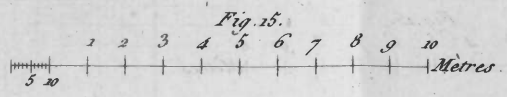 Fig. 15.
1 2 3 4 5 6 7 8 9 10
5 10 Mètres